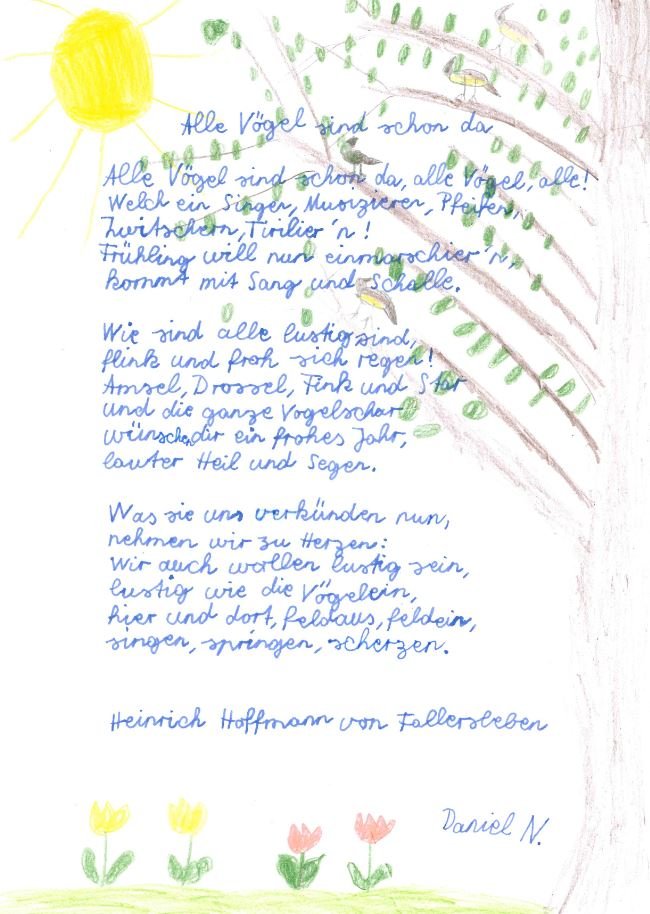 Alle Vögel sind schon da
Alle Vögel sind schon da, alle Vögel, alle!
Welch ein Singen, Musizieren, Pfeifen,
Zwitschern, Tirilier'n!
Frühling will nun einmarschier'n,
kommt mit Sang und Schalle.
Wie sind alle lustig sind,
flink und froh sich regen!
Amsel, Drossel, Fink und Star
und die ganze Vogelschar
wünschen dir ein frohes Jahr,
lauter Heil und Segen.
Was sie uns verkünden nun,
nehmen wir zu Herzen:
Wir auch wollen lustig sein,
lustig wie die Vögelein,
hier und dort, feldaus, feldein,
singen, springen, scherzen.
Heinrich Hoffmann von Fallersleben
Daniel N.